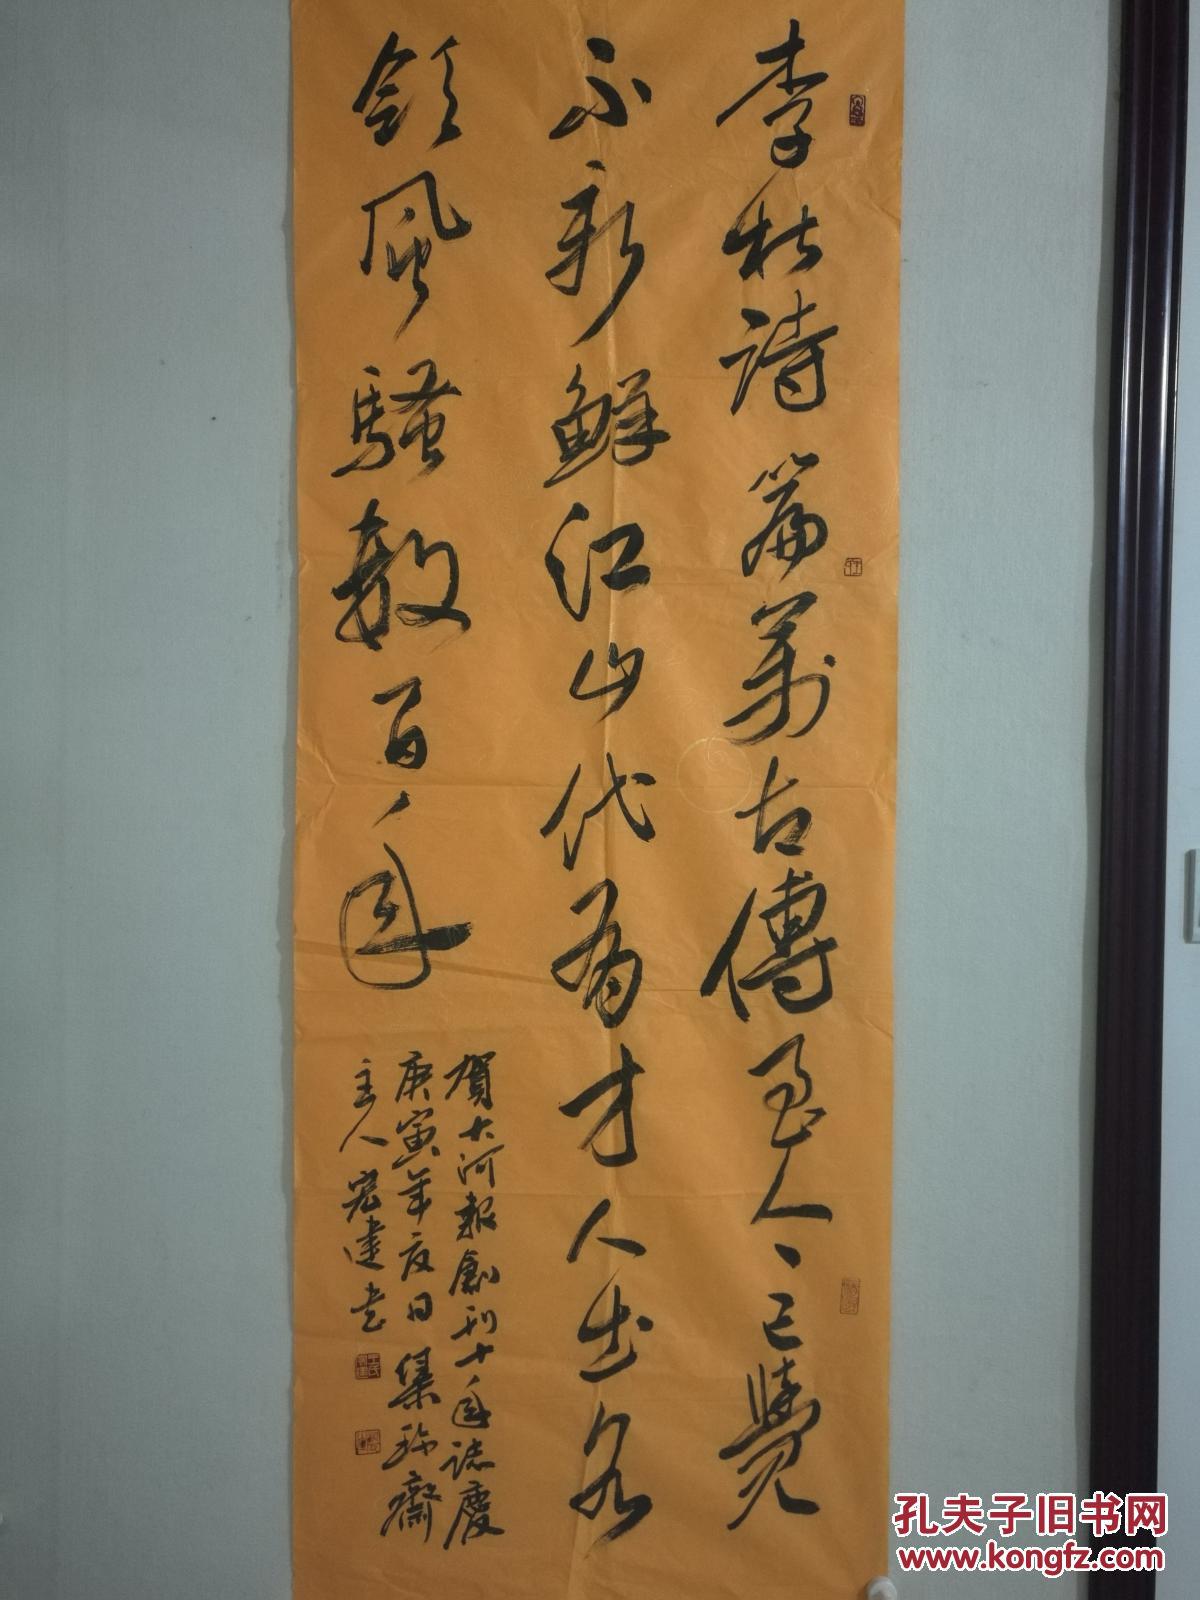 李杜詩篇萬古傳至今已覺
不新鮮江山代有才人出各
領風騷數百年
賀大河報創刊十年誌慶
庚寅年夏日集珍齋
主人宏建书
孔夫子旧书网
www.kongfz.com